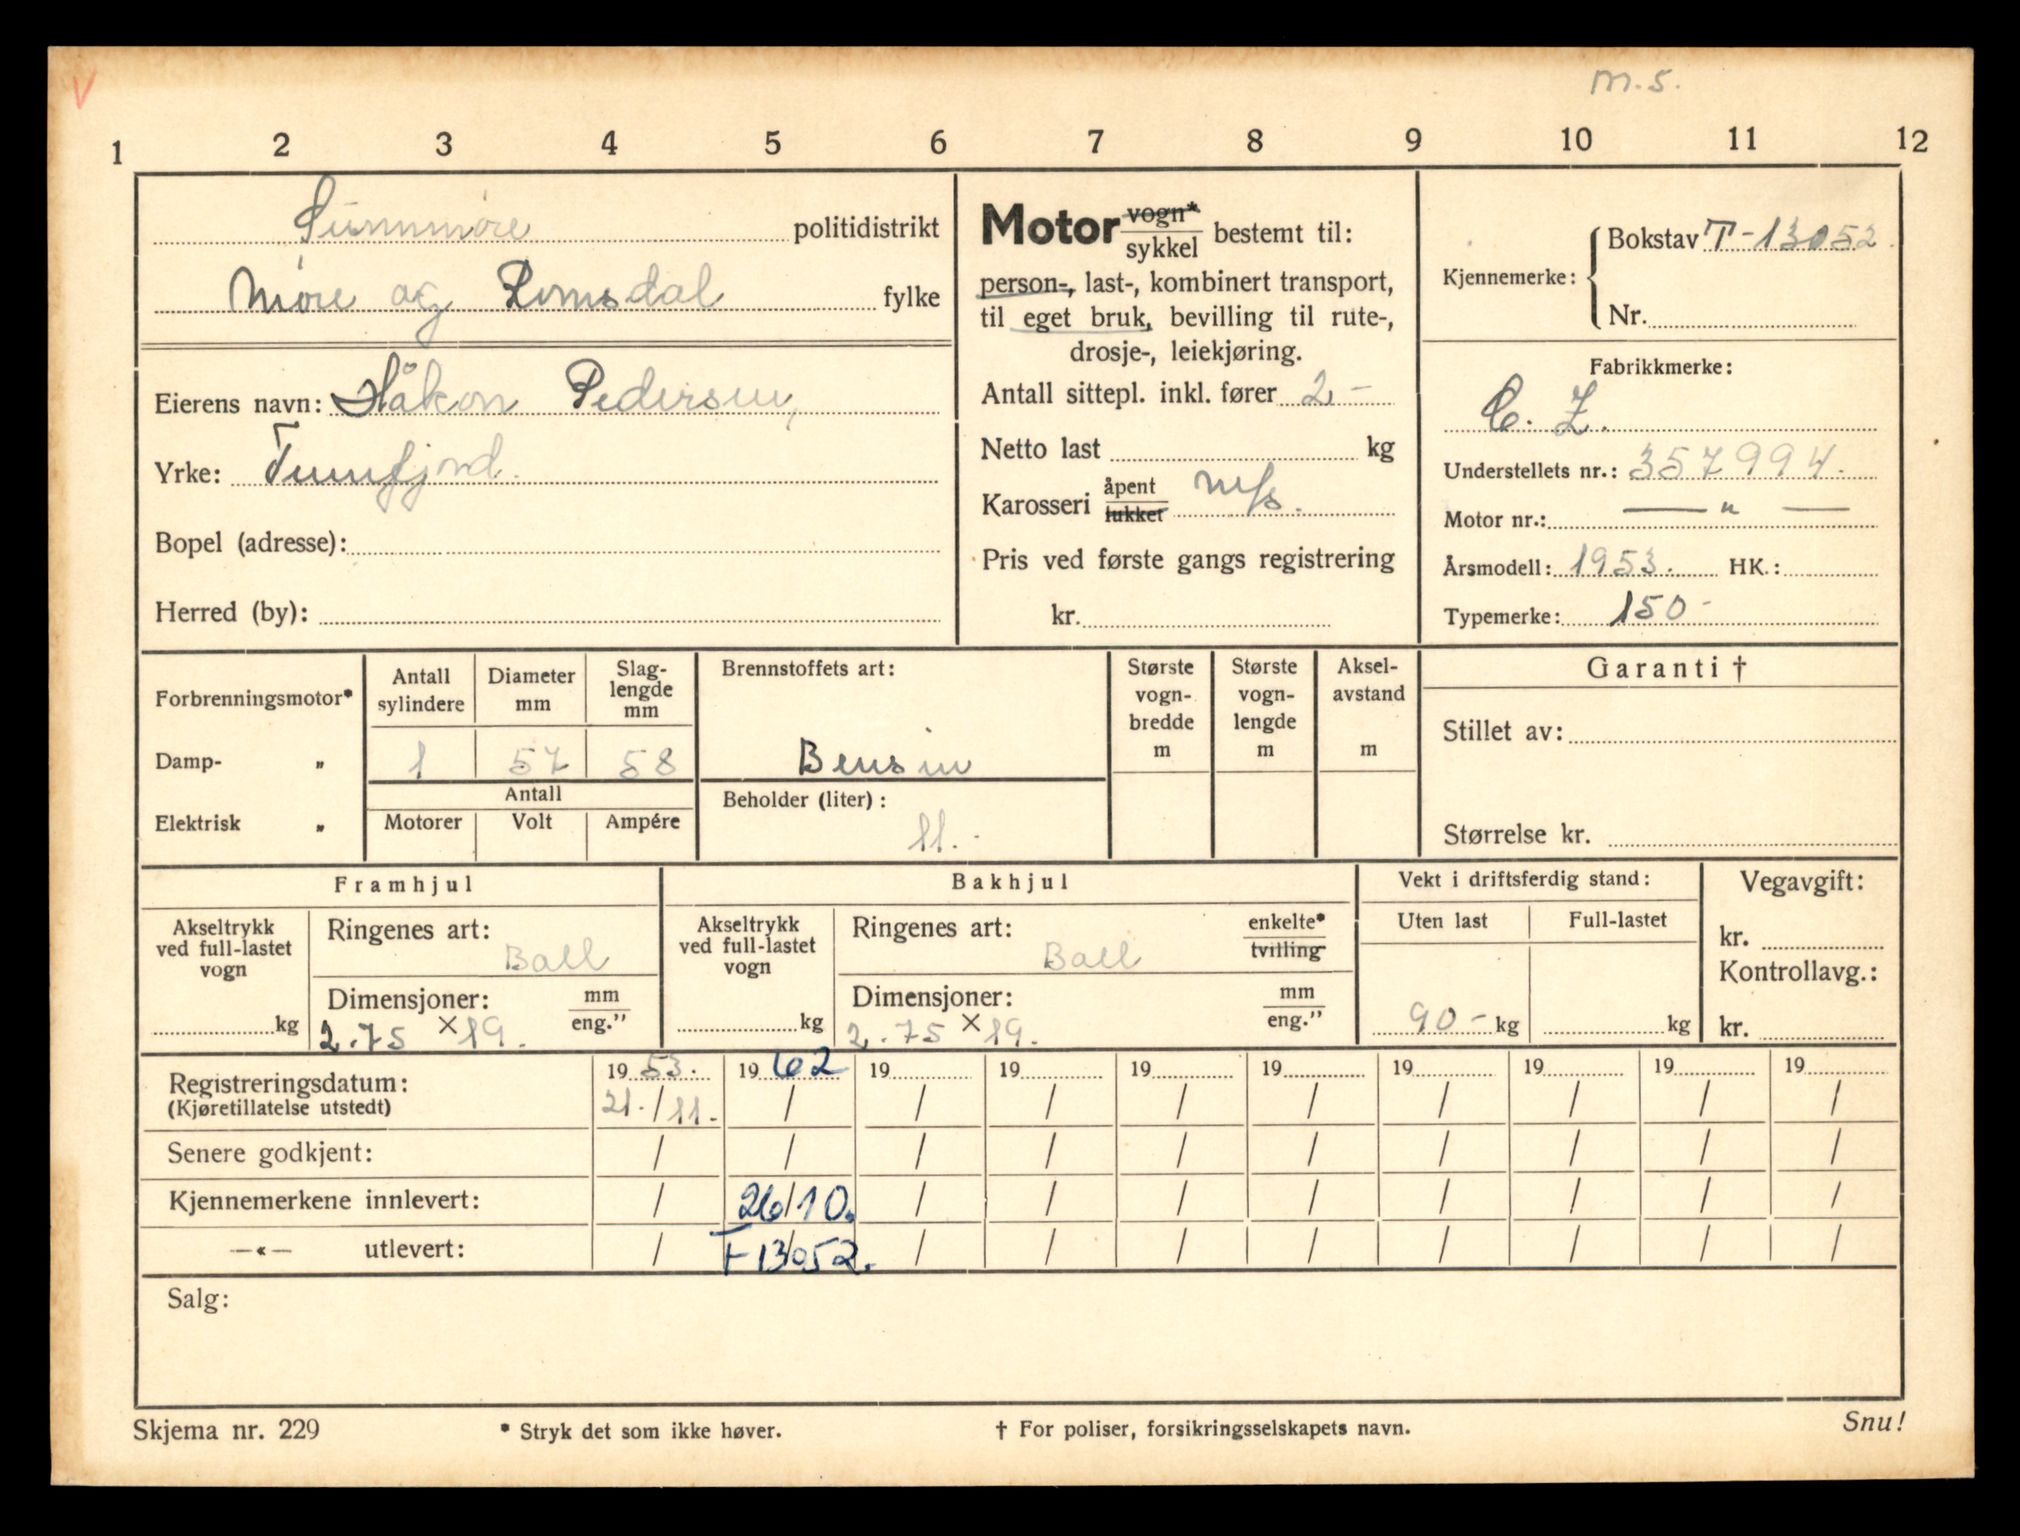 V
M.S.
1 2 3 4 5 6 7 8 9 10 11 12
Sunnmøre politidistrikt
Møre og Romsdal fylke
Eierens navn: Håkon Pedersen,
Yrke: Tunnfjord.
Bopel (adresse):
Herred (by):
Motor vogn* / sykkel bestemt til:
person-, last-, kombinert transport,
til eget bruk, bevilling til rute-,
drosje-, leiekjøring.
Antall sittepl. inkl. fører 2.-
Netto last kg
Karosseri åpent / lukket m/s.
Pris ved første gangs registrering
kr.
Kjennemerke: Bokstav T-13052.
Nr.
Fabrikkmerke:
C. Z.
Understellets nr.: 357994.
Motor nr.: — " —
Årsmodell: 1953. HK.:
Typemerke: 150-
Forbrenningsmotor*
Damp- „
Elektrisk „
Antall sylindere 1
Diameter mm 57
Slaglengde mm 58
Antall
Motorer Volt Ampére
Brennstoffets art:
Bensin
Beholder (liter):
11.
Største vogn-bredde m
Største vogn-lengde m
Aksel-avstand m
Garanti †
Stillet av:
Størrelse kr.
Framhjul
Akseltrykk ved full-lastet vogn kg
Ringenes art: Ball
Dimensjoner: mm / eng."
2.75 × 19.
Bakhjul
Akseltrykk ved full-lastet vogn kg
Ringenes art: Ball enkelte* / tvilling
Dimensjoner: mm / eng."
2.75 × 19.
Vekt i driftsferdig stand:
Uten last 90- kg
Full-lastet kg
Vegavgift:
kr.
Kontrollavg.:
kr.
Registreringsdatum: 19 53. 19 62 19 19 19 19 19 19 19 19
(Kjøretillatelse utstedt) 21./11. / / / / / / / / /
Senere godkjent: / / / / / / / / / /
Kjennemerkene innlevert: / 26/10. / / / / / / / /
—«— utlevert: / T-13052. / / / / / / / /
Salg:
Skjema nr. 229 * Stryk det som ikke høver. † For poliser, forsikringsselskapets navn. Snu!